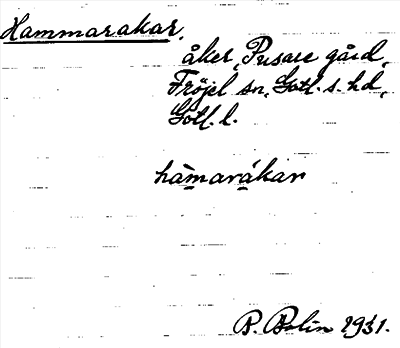 Hammarakar,
åker, Pusare gård,
Fröjel sn, Gotl. s. hd,
Gotl. l.
hàmaràkar
B. Bolin 1931.